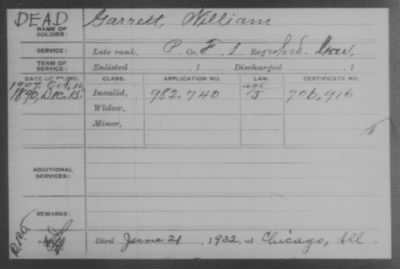 DEAD
Garrett, William
NAME OF SOLDIER:
SERVICE: Late rank, P Co. F, 1 Reg't Ind. Cav.
TERM OF SERVICE: Enlisted , 1 Discharged , 1
DATE OF FILING. CLASS. APPLICATION NO. LAW. CERTIFICATE NO.
1907, Oct. 16
1890, Dec. 15. Invalid, 982.740 J 706,916
Widow,
Minor,
ADDITIONAL SERVICES:
REMARKS:
Died June 21, 1932, at Chicago, Ill.